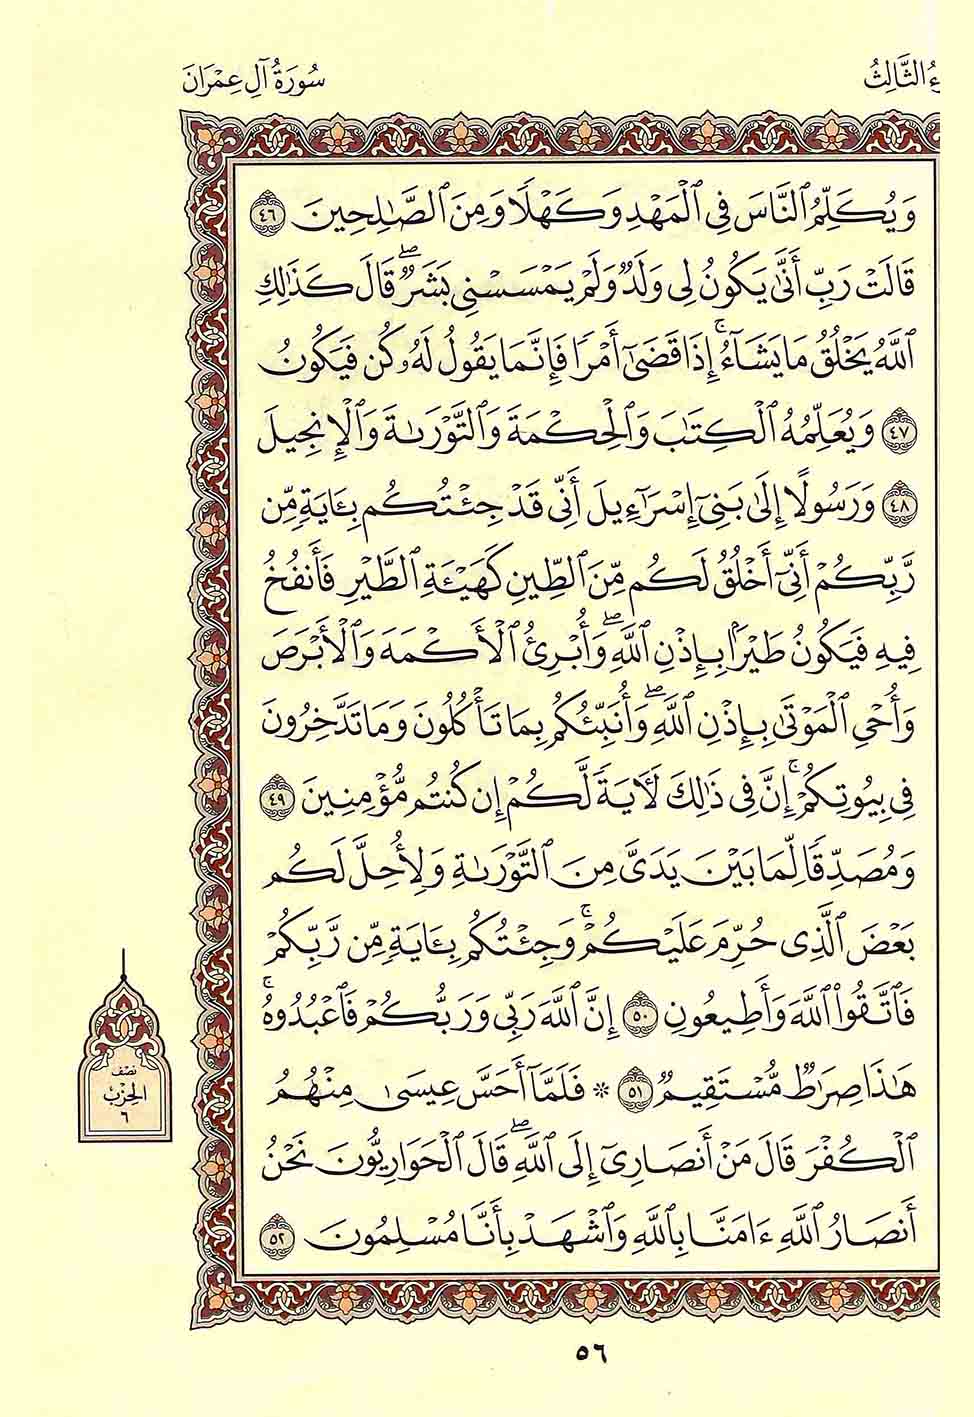 ءُ الثَّالِثُ
سُورَةُ آلِ عِمْرَانَ
وَيُكَلِّمُ ٱلنَّاسَ فِي ٱلْمَهْدِ وَكَهْلًا وَمِنَ ٱلصَّٰلِحِينَ ٤٦
قَالَتْ رَبِّ أَنَّىٰ يَكُونُ لِي وَلَدٌ وَلَمْ يَمْسَسْنِي بَشَرٌۖ قَالَ كَذَٰلِكِ
ٱللَّهُ يَخْلُقُ مَا يَشَآءُۚ إِذَا قَضَىٰٓ أَمْرًا فَإِنَّمَا يَقُولُ لَهُۥ كُن فَيَكُونُ
٤٧ وَيُعَلِّمُهُ ٱلْكِتَٰبَ وَٱلْحِكْمَةَ وَٱلتَّوْرَىٰةَ وَٱلْإِنجِيلَ
٤٨ وَرَسُولًا إِلَىٰ بَنِيٓ إِسْرَٰٓءِيلَ أَنِّي قَدْ جِئْتُكُم بِـَٔايَةٍ مِّن
رَّبِّكُمْ أَنِّيٓ أَخْلُقُ لَكُم مِّنَ ٱلطِّينِ كَهَيْـَٔةِ ٱلطَّيْرِ فَأَنفُخُ
فِيهِ فَيَكُونُ طَيْرًۢا بِإِذْنِ ٱللَّهِۖ وَأُبْرِئُ ٱلْأَكْمَهَ وَٱلْأَبْرَصَ
وَأُحْيِ ٱلْمَوْتَىٰ بِإِذْنِ ٱللَّهِۖ وَأُنَبِّئُكُم بِمَا تَأْكُلُونَ وَمَا تَدَّخِرُونَ
فِي بُيُوتِكُمْۚ إِنَّ فِي ذَٰلِكَ لَـَٔايَةً لَّكُمْ إِن كُنتُم مُّؤْمِنِينَ ٤٩
وَمُصَدِّقًا لِّمَا بَيْنَ يَدَيَّ مِنَ ٱلتَّوْرَىٰةِ وَلِأُحِلَّ لَكُم
بَعْضَ ٱلَّذِي حُرِّمَ عَلَيْكُمْۚ وَجِئْتُكُم بِـَٔايَةٍ مِّن رَّبِّكُمْ
فَٱتَّقُوا۟ ٱللَّهَ وَأَطِيعُونِ ٥٠ إِنَّ ٱللَّهَ رَبِّي وَرَبُّكُمْ فَٱعْبُدُوهُۚ
هَٰذَا صِرَٰطٌ مُّسْتَقِيمٌ ٥١ * فَلَمَّآ أَحَسَّ عِيسَىٰ مِنْهُمُ
ٱلْكُفْرَ قَالَ مَنْ أَنصَارِيٓ إِلَى ٱللَّهِۖ قَالَ ٱلْحَوَارِيُّونَ نَحْنُ
أَنصَارُ ٱللَّهِ ءَامَنَّا بِٱللَّهِ وَٱشْهَدْ بِأَنَّا مُسْلِمُونَ ٥٢
نصف
الحزب
٦
٥٦